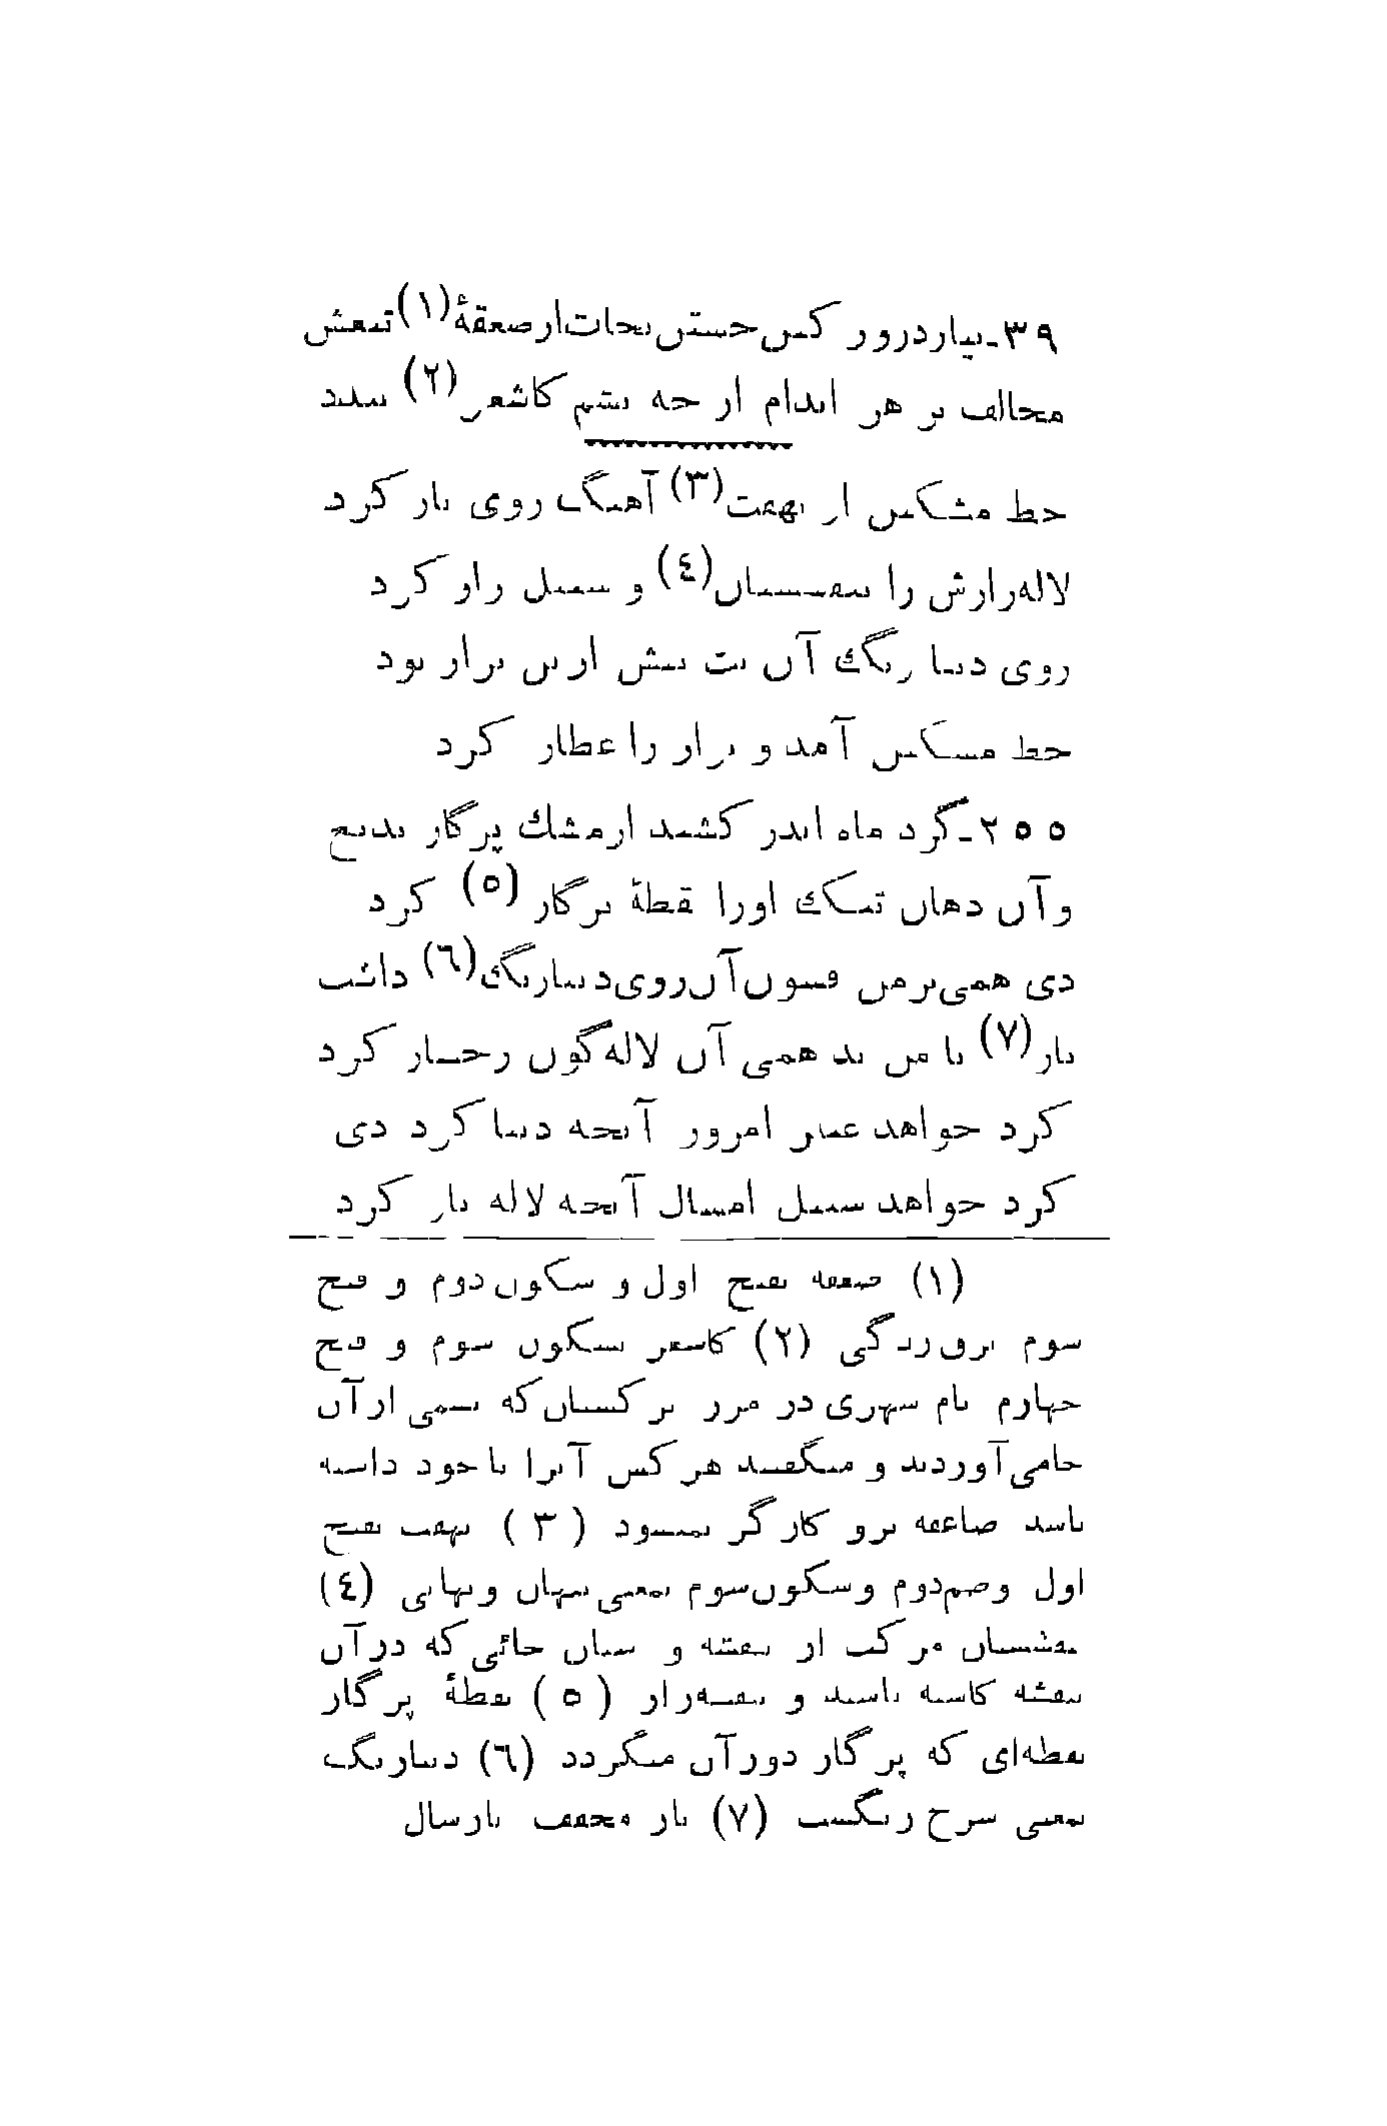 ۳۹ـ نیارد روز کین جستن نجات از صعقهٔ (۱) تیغش
مخالف بر هر اندام ار چه یشم کاشغر (۲) بندد
خط مشکین از نهفت (۳) آهنگ روی یار کرد
لاله‌زارش را بنفشستان (٤) و سنبل زار کرد
روی دیبا رنگ آن بت پیش ازین بزاز بود
خط مشکین آمد و بزاز را عطار کرد
۲۵۵ـ گرد ماه اندر کشید از مشك پرگار بدیع
وآن دهان تنگ اورا نقطهٔ پرگار (۵) کرد
دی همی بر من فسون آن روی دیبارنگ (٦) داشت
پار (۷) با من بد همی آن لاله‌گون رخسار کرد
کرد خواهد عنبر امروز آنچه دیبا کرد دی
کرد خواهد سنبل امسال آنچه لاله پار کرد
(۱) صعقه بفتح اول و سکون دوم و فتح
سوم برق‌زدگی (۲) کاشغر بسکون سوم و فتح
چهارم نام شهری در مرز ترکستان که یشمی از آن
جا می‌آوردند و میگفتند هر کس آنرا با خود داشته
باشد صاعقه برو کارگر نمیشود (۳) نهفت بفتح
اول وضم دوم وسکون سوم بمعنی پنهان ونهانی (٤)
بنفشستان مرکب از بنفشه و ستان جائی که در آن
بنفشه کاشته باشند و بنفشه‌زار (۵) نقطهٔ پرگار
نقطه‌ای که پرگار دور آن میگردد (٦) دیبارنگ
بمعنی سرخ رنگست (۷) پار مخفف پارسال